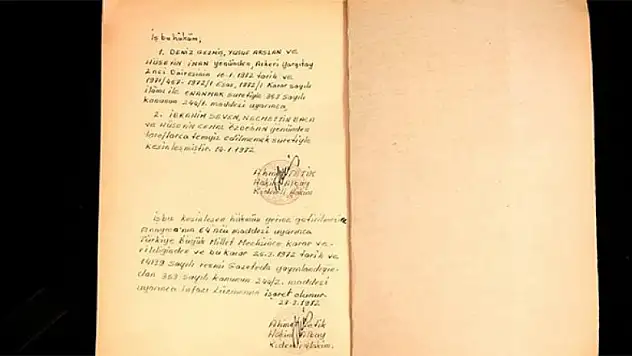 İşbu hüküm,
1. DENİZ GEZMİŞ, YUSUF ARSLAN VE
HÜSEYİN İNAN yönünden, Askeri Yargıtay
2nci Dairesinin 10.1.1972 tarih ve
1971/457-1972/1 Esas, 1972/1 Karar sayılı
ilâmı ile ONANMAK suretiyle 353 sayılı
kanunun 244/1. maddesi uyarınca,
2. İBRAHİM SEVEN, NECMETTİN BACA
ve HÜSEYİN CEMAL ÖZDOĞAN yönünden
taraflarca temyiz edilmemek suretiyle
kesinleşmiştir. 1.1972
Hâkim Albay
Kıdemli Hâkim
İşbu kesinleşen hükmün yerine getirilmesine
Anayasa'nın 64 üncü maddesi uyarınca
Türkiye Büyük Millet Meclisince karar ve-
rildiğinden ve bu karar 25.3.1972 tarih ve
14139 sayılı resmî Gazetede yayınlandığın-
dan 353 sayılı kanunun 244/2. maddesi
uyarınca infazı lüzumuna işaret olunur.
3.1972
Hâkim Albay
Kıdemli Hâkim.